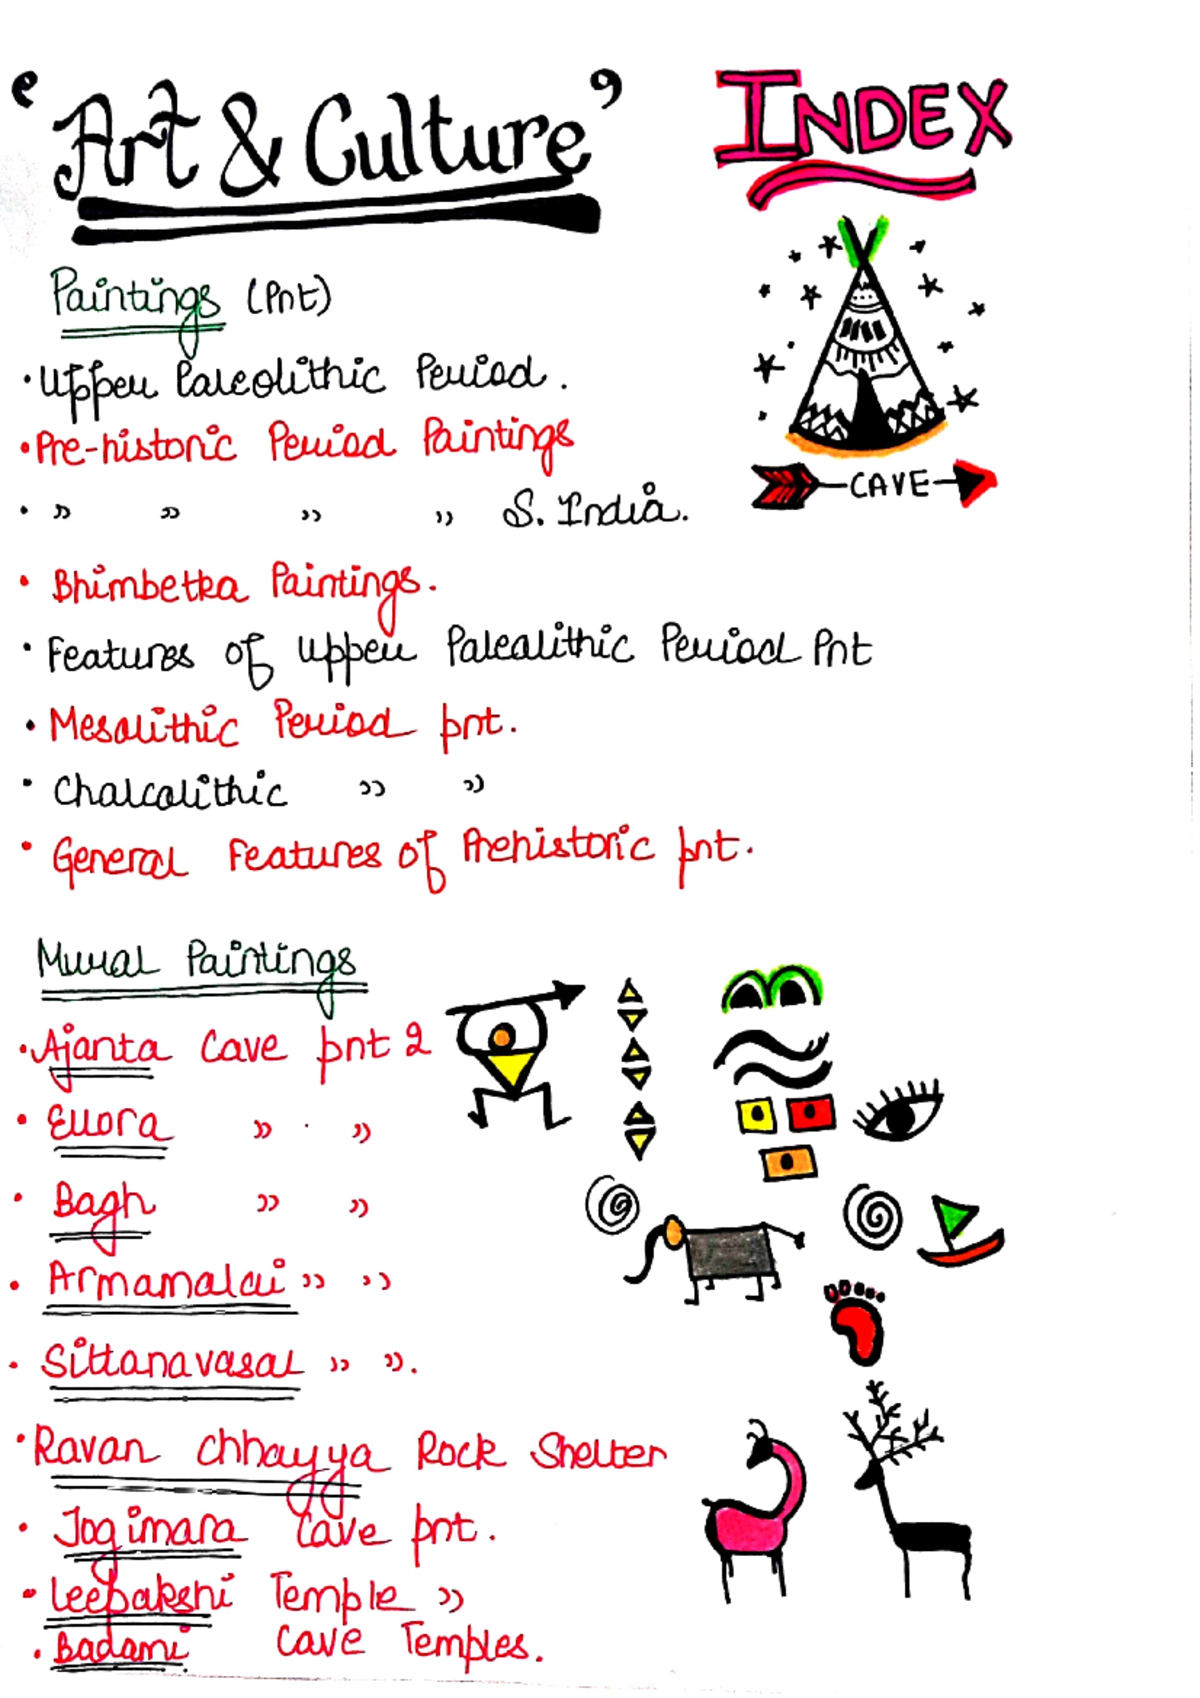 ‘Art & Culture’
INDEX
Paintings (Pnt)
• Upper Paleolithic Period.
• Pre-historic Period Paintings
• " " " " S. India.
• Bhimbetka Paintings.
• Features of Upper Palealithic Period Pnt
• Mesolithic Period pnt.
• Chalcolithic " "
• General Features of Prehistoric pnt.
CAVE
Mural Paintings
• Ajanta Cave pnt 2
• Ellora " "
• Bagh " "
• Armamalai " "
• Sittanavasal " ".
• Ravan Chhayya Rock Shelter
• Jogimara Cave pnt.
• Leepakshi Temple "
• Badami Cave Temples.